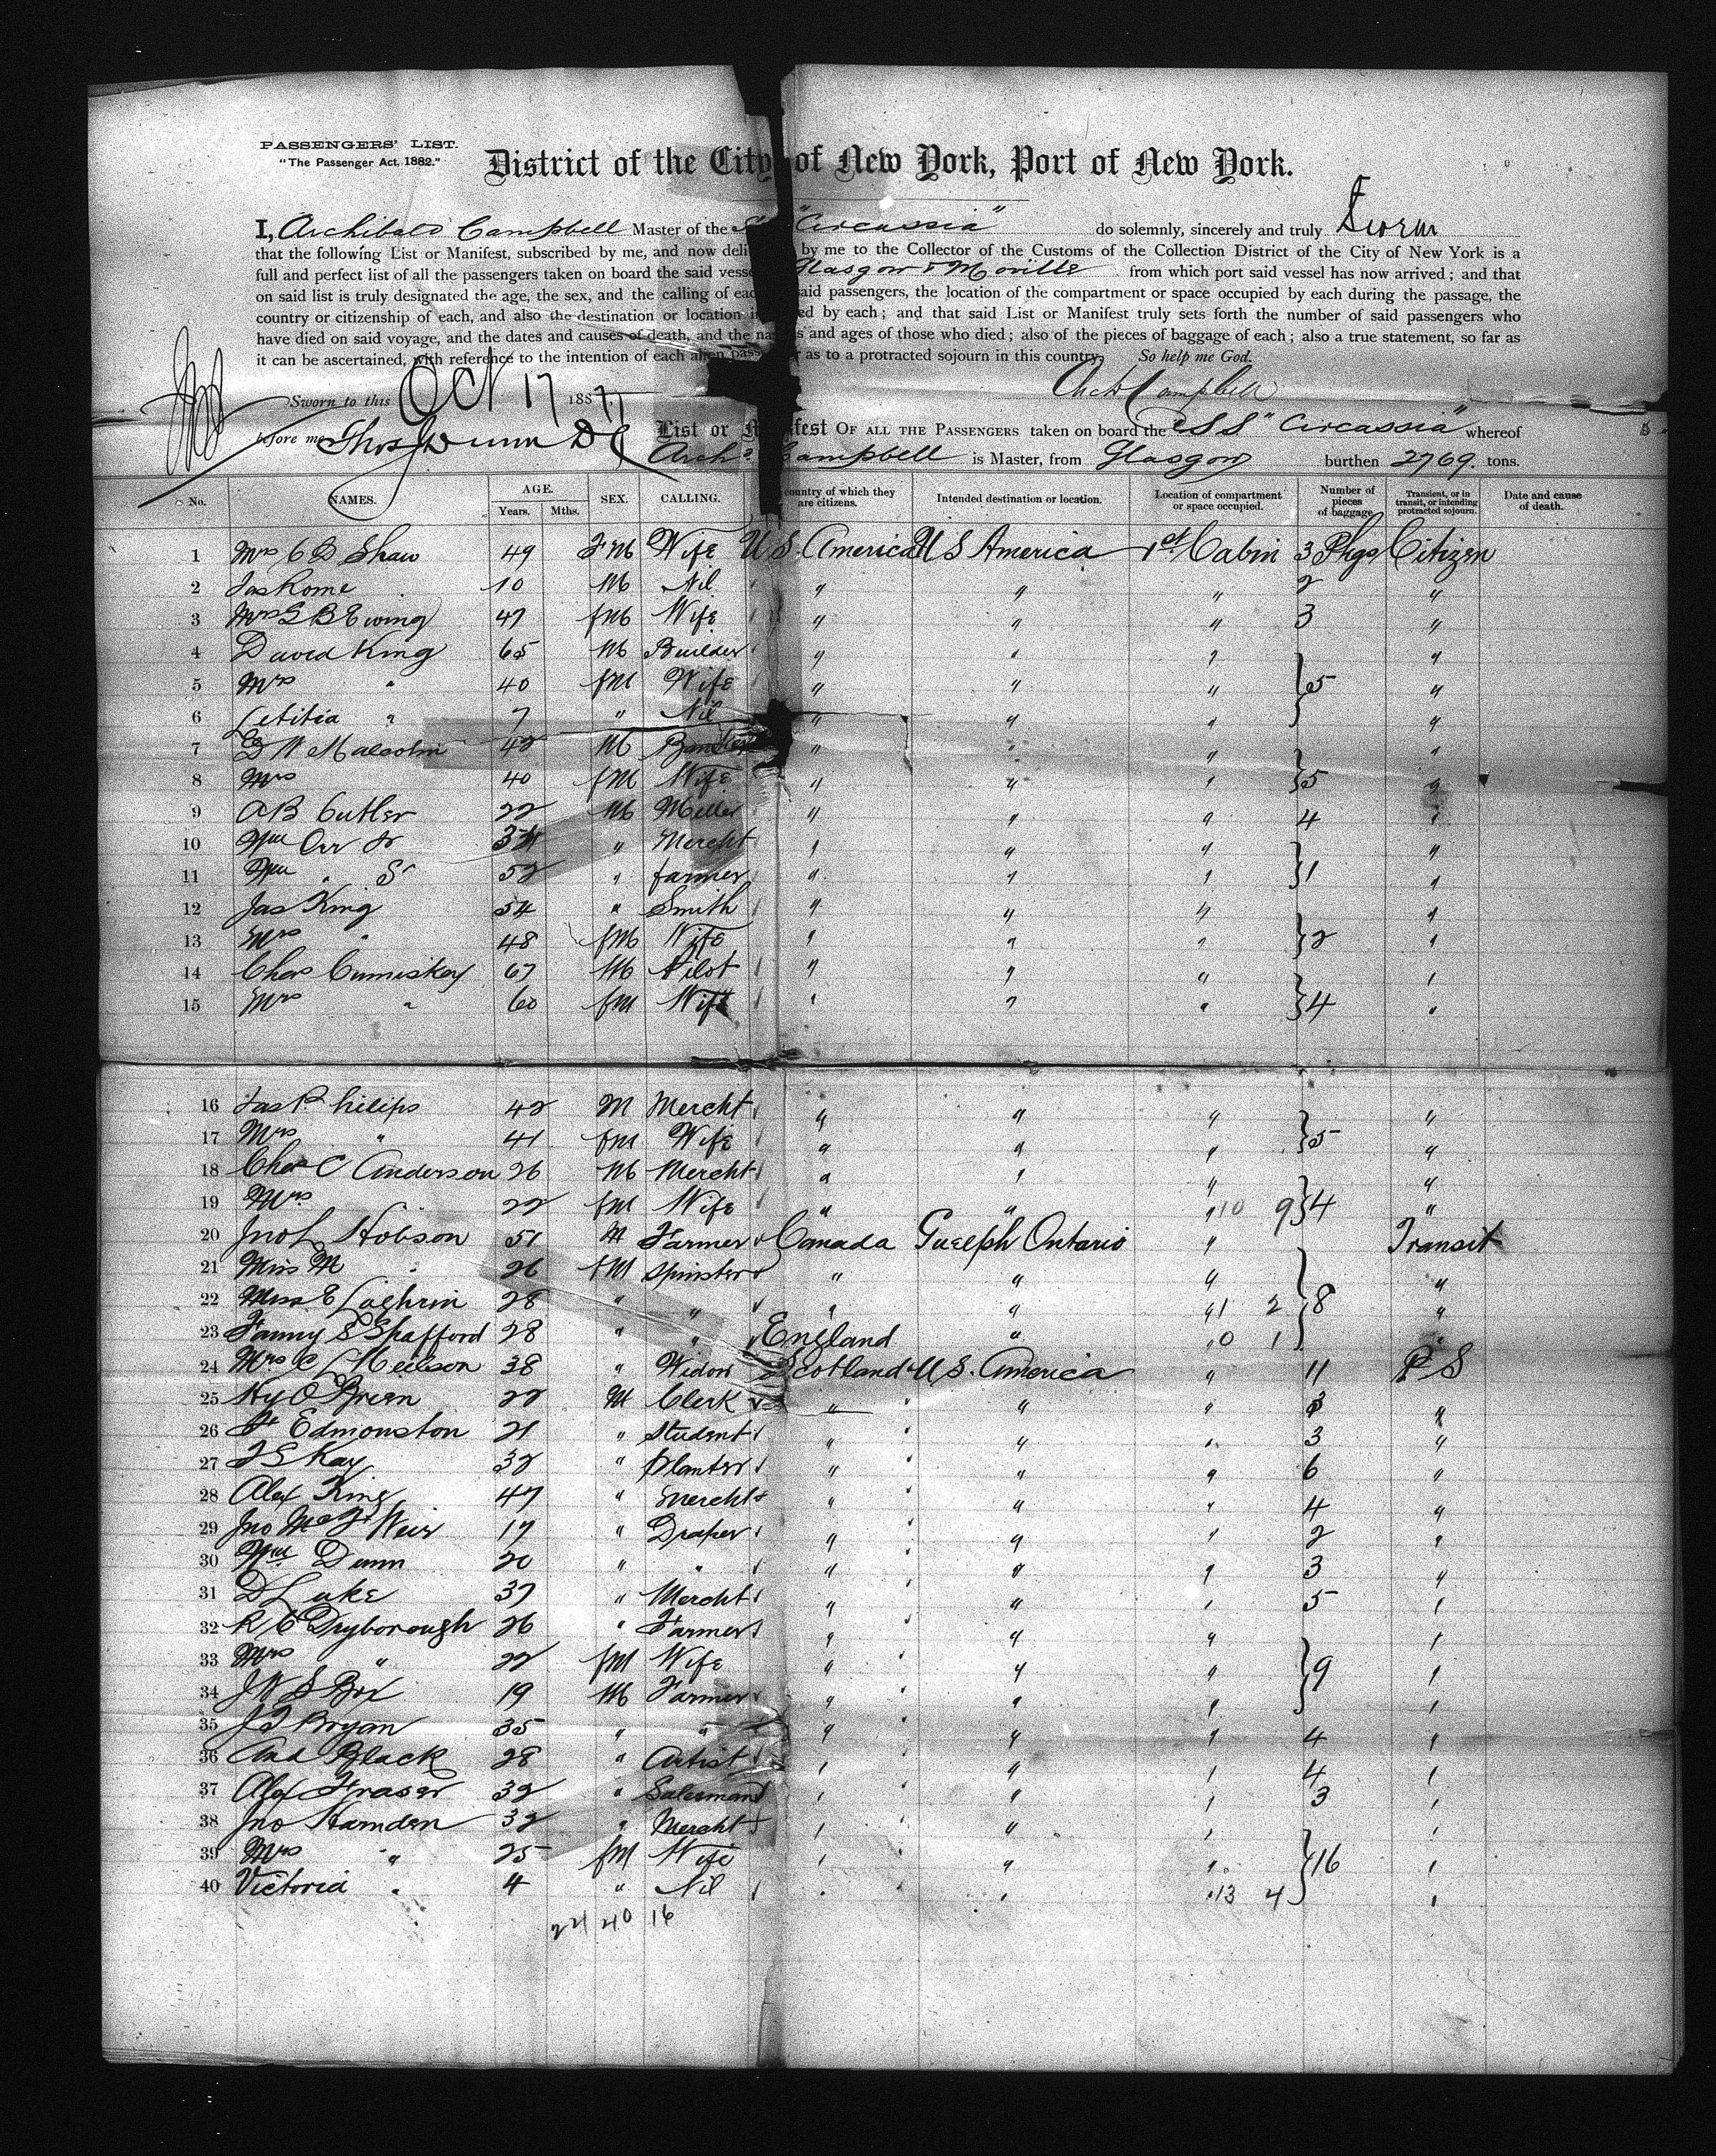 PASSENGERS' LIST.
"The Passenger Act, 1882."
District of the City of New York, Port of New York.
I, Archibald Campbell Master of the "Circassia" do solemnly, sincerely and truly Sworn
that the following List or Manifest, subscribed by me, and now deli by me to the Collector of the Customs of the Collection District of the City of New York is a
full and perfect list of all the passengers taken on board the said vesse Glasgow & Moville from which port said vessel has now arrived; and that
on said list is truly designated the age, the sex, and the calling of eac said passengers, the location of the compartment or space occupied by each during the passage, the
country or citizenship of each, and also the destination or location i ed by each; and that said List or Manifest truly sets forth the number of said passengers who
have died on said voyage, and the dates and causes of death, and the na s and ages of those who died; also of the pieces of baggage of each; also a true statement, so far as
it can be ascertained, with reference to the intention of each alien pass as to a protracted sojourn in this country. So help me God.
Archd Campbell
Sworn to this Oct 17 1887
before me Thos Dunn D C
List or Manifest OF ALL THE PASSENGERS taken on board the SS "Circassia" whereof
Archd Campbell is Master, from Glasgow burthen 2769 tons.
No. NAMES. AGE. Years. Mths. SEX. CALLING. country of which they are citizens. Intended destination or location. Location of compartment or space occupied. Number of pieces of baggage Transient, or in transit, or intending protracted sojourn. Date and cause of death.
1 Mrs C D Shaw 49 FM Wife U S. America U S America 1st Cabin 3 Pkgs Citizen
2 Jas Rome 10 M Nil " " " 2 "
3 Mrs G B Ewing 47 fM Wife " " " 3 "
4 David King 65 M Builder " " " "
5 Mrs " 40 fM Wife " " " } 5 "
6 Letitia " 7 " Nil " " " "
7 G W Malcolm 42 M Banker " " " "
8 Mrs 40 fM Wife " " " } 5 "
9 A B Cutler 22 M Miller " " " 4 "
10 Wm Orr Jr " Mercht " " " "
11 Wm " Sr 52 " farmer " " " } 1 "
12 Jas King 54 " Smith " " " "
13 Mrs " 48 fM Wife " " " } 2 "
14 Chas Cumiskey 67 M Pilot " " " "
15 Mrs " 60 fM Wife " " " } 4 "
16 Jas Philips 42 M Mercht " " " "
17 Mrs " 41 fM Wife " " " } 5 "
18 Chas C Anderson 26 M Mercht " " " "
19 Mrs 22 fM Wife " " " 10 9 } 4 "
20 Jno L Hobson 51 M Farmer Canada Guelph Ontario " Transit
21 Miss M " 26 fM Spinster " " " "
22 Miss E Laghrin 28 " " " " " 1 2 } 8 "
23 Fanny S Spafford 28 " " England " " 0 1 "
24 Mrs C L Neilson 38 " Widow Scotland U S. America " 11 P S
25 Hy O'Brien 22 M Clerk " " " 3 "
26 Edmonston 21 " Student " " " 3 "
27 Kay 32 " Planter " " " 6 "
28 Alex King 47 " Mercht " " " 4 "
29 Jno Weir 17 " Draper " " " 2 "
30 Wm Dunn 20 " " " " " 3 "
31 D Luke 37 " Mercht " " " 5 "
32 R C Dryborough 26 " Farmer " " " "
33 Mrs " 22 fM Wife " " " } 9 "
34 J W S Box 19 M Farmer " " " "
35 Bryan 35 " " " " " 4 "
36 And Black 28 " Artist " " " 4 "
37 Alex Fraser 32 " Salesman " " " 3 "
38 Jno Harnden 32 " Mercht " " " "
39 Mrs " 25 fM Wife " " " } 16 "
40 Victoria " 4 " Nil " " " 13 4 "
24 40 16